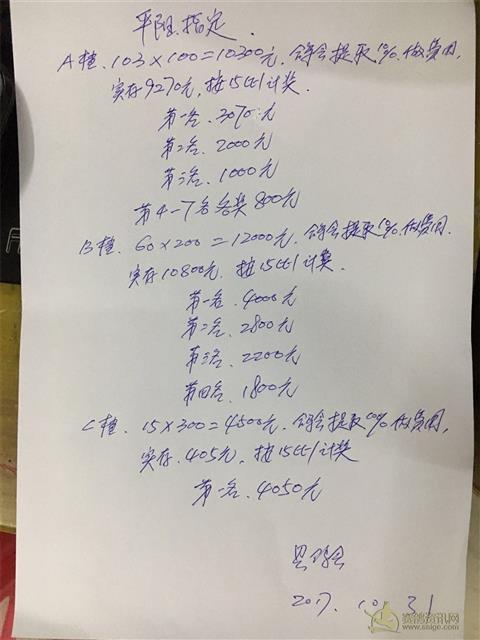 平阳指定.
A档. 103×100=10300元, 鸽会提取10%做费用,
实存9270元, 按15比1计奖.
第一名. 3070元
第二名. 2000元
第三名. 1000元
第4-7名各奖800元
B档. 60×200=12000元. 鸽会提取10%做费用.
实存10800元. 按15比1计奖.
第一名. 4000元
第二名. 2800元
第三名. 2200元
第四名. 1800元
C档. 15×300=4500元. 鸽会提取10%做费用,
实存. 405元, 按15比1计奖
第一名. 4050元
鸽会
2017. 10. 31
赛鸽资讯网
www.saige.com